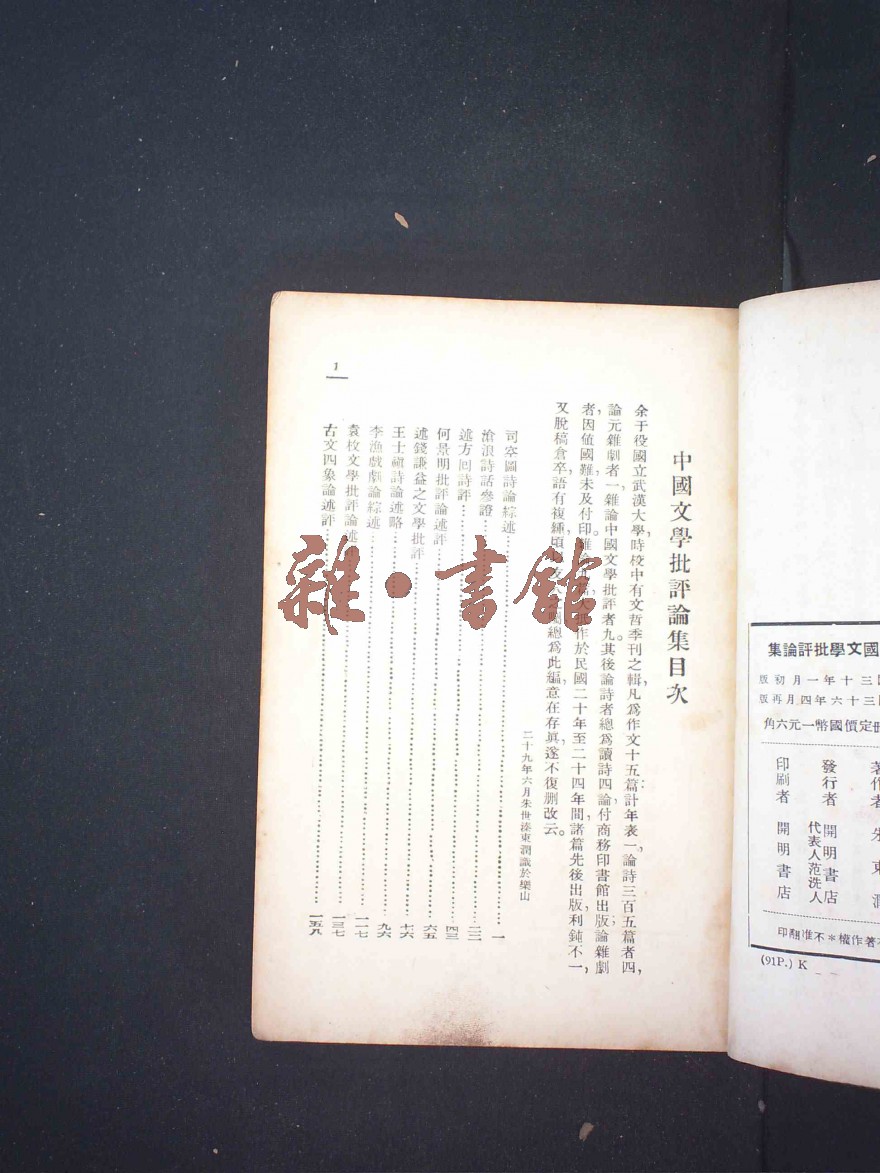 中國文學批評論集目次
余于役國立武漢大學,時校中有文哲季刊之輯,凡爲作文十五篇:計年表一,論詩三百五篇者四,
論元雜劇者一,雜論中國文學批評者九。其後論詩者總爲讀詩四論,付商務印書館出版;論雜劇
者,因値國難,未及付印。雜論 大抵作於民國二十年至二十四年間,諸篇先後出版,利鈍不一,
又脫稿倉卒,語有複 總爲此編,意在存眞,遂不復删改云。
二十九年六月朱世溱東潤識於樂山
司空圖詩論綜述……一
滄浪詩話參證……二二
述方回詩評……四三
何景明批評論述評……六五
述錢謙益之文學批評……七六
王士禛詩論述略……九六
李漁戲劇論綜述……一一七
袁枚文學批評論述評……一三七
古文四象論述評……一五八
1
雜·書館
國文學批評論集
三十年一月初版
三十六年四月再版
册定價國幣一元六角
著作者 朱東潤
發行者 開明書店
代表人范洗人
印刷者 開明書店
有著作權*不准翻印
(91P.) K